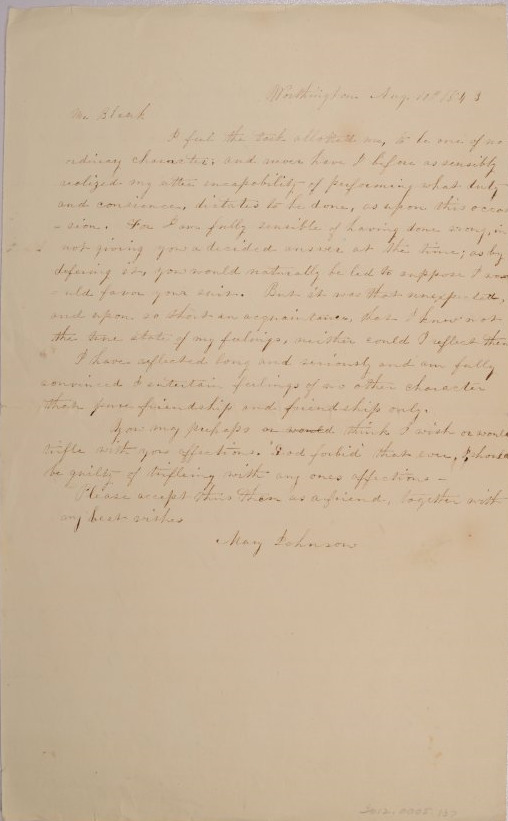 Worthington Aug 10th 1843
Mr Blank
I feel the task allotted me, to be one of no
ordinary character; and never have I before as sensibly
realized my utter incapability of performing what duty
and conscience, dictates to be done, as upon this occa
-sion. For I am fully sensible of having done wrong, in
not giving you a decided answer at the time; as by
defering it, you would naturally be led to suppose I
would favor your suit. But it was that unexpected,
and upon so short an acquaintance, that I knew not
the true state of my feelings, neither could I reflect then
I have reflected long and seriously and am fully
convinced I entertain feelings of no other character
than pure friendship and friendship only.
You my perhaps or would think I wish or would
trifle with you affections. God forbid that ever, I should
be guilty of trifleing with any ones affections -
Please accept this then as a friend, together with
my best wishes
Mary Johnson
2012.0005.137